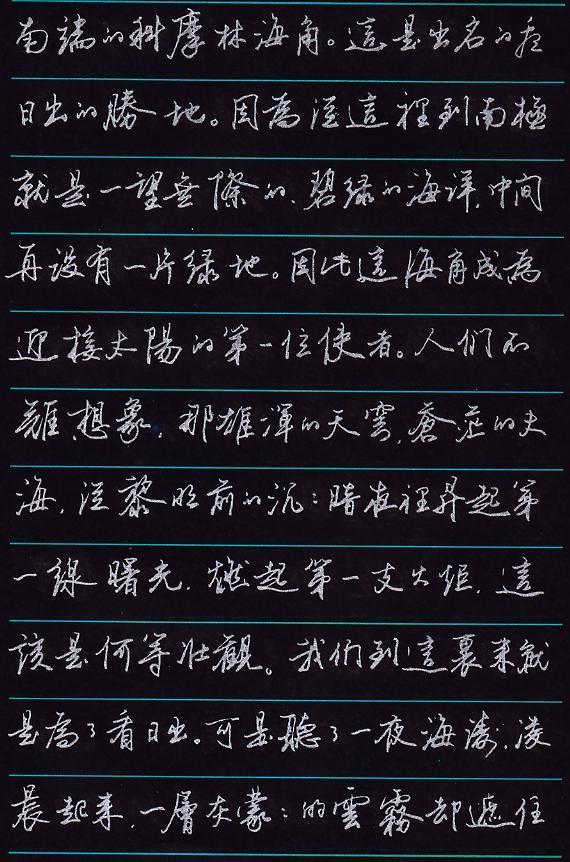 南端的科摩林海角。這是出名的看
日出的勝地。因為從這裡到南極
就是一望無際的、碧綠的海洋，中间
再没有一片綠地。因此這海角成為
迎接太陽的第一位使者。人们不
難想象，那雄渾的天穹，蒼茫的大
海，從黎明前的沉：暗夜裡昇起第
一線曙光，燃起第一支火炬，這
該是何等壯觀。我们到這裏来就
是為了看日出。可是聽了一夜海濤，凌
晨起来，一層灰蒙：的雲霧却遮住